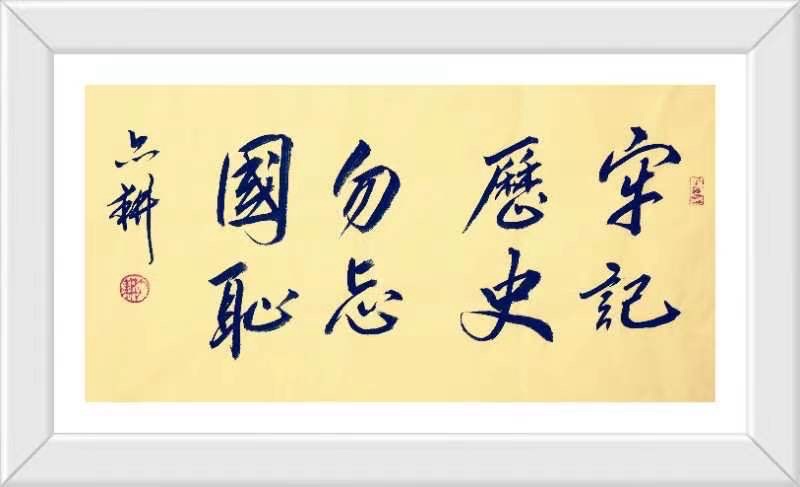 牢記
歷史
勿忘
國恥
耕